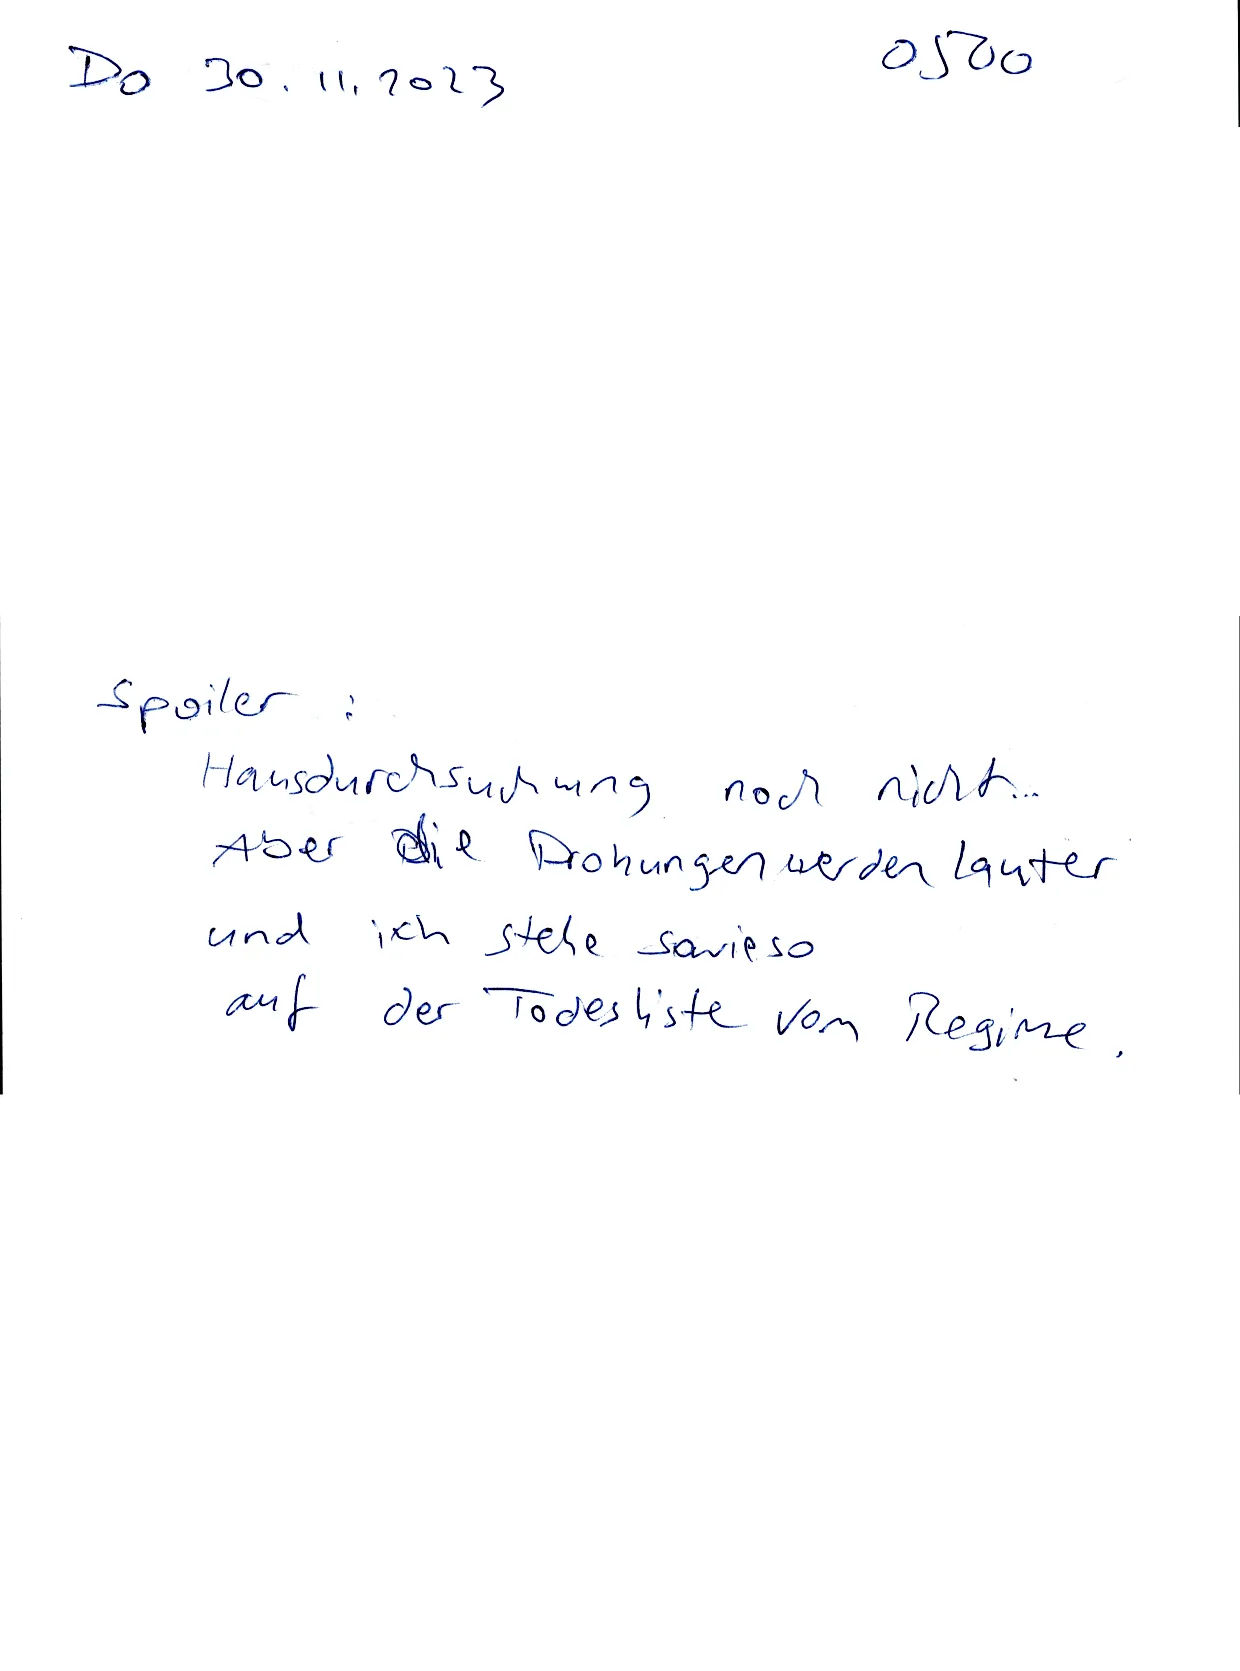 Do 30.11.2023 0500
Spoiler:
Hausdurchsuchung noch nicht...
Aber die Drohungen werden lauter
und ich stehe sowieso
auf der Todesliste vom Regime.